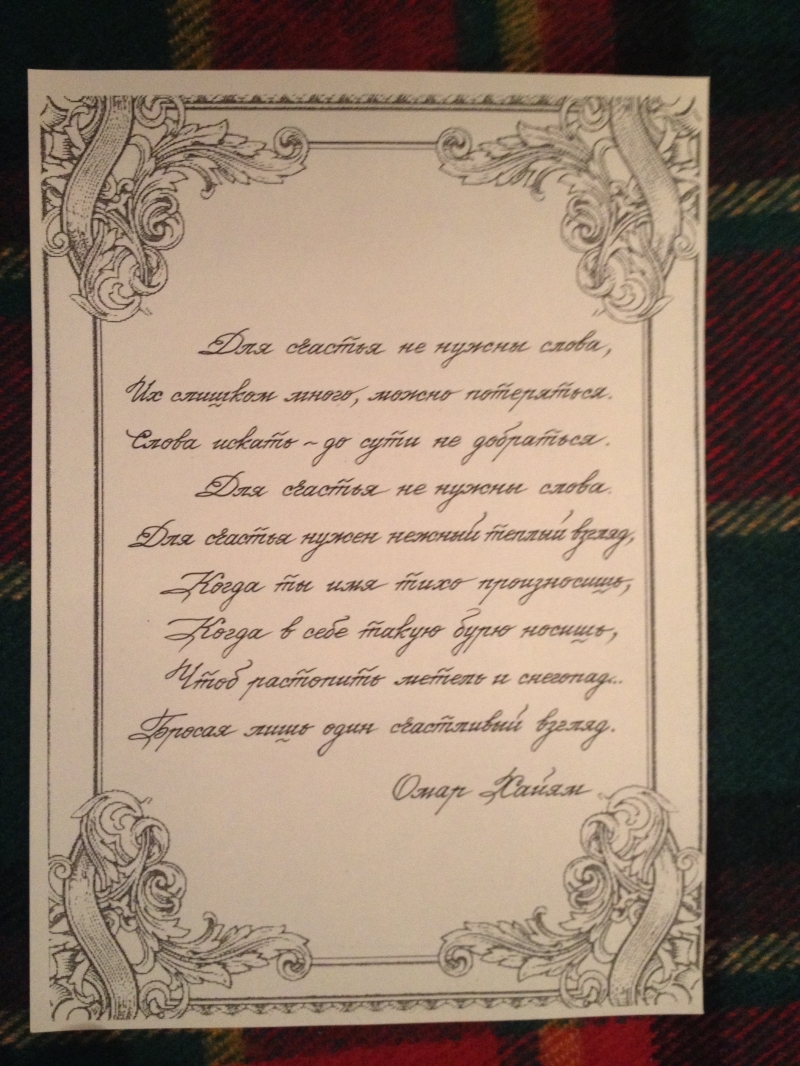 Для счастья не нужны слова,
Их слишком много, можно потеряться.
Слова искать ~ до сути не добраться.
Для счастья не нужны слова.
Для счастья нужен нежный теплый взгляд,
Когда ты имя тихо произносишь,
Когда в себе такую бурю носишь,
Чтоб растопить метель и снегопад..
Бросая лишь один счастливый взгляд.
Омар Хайям